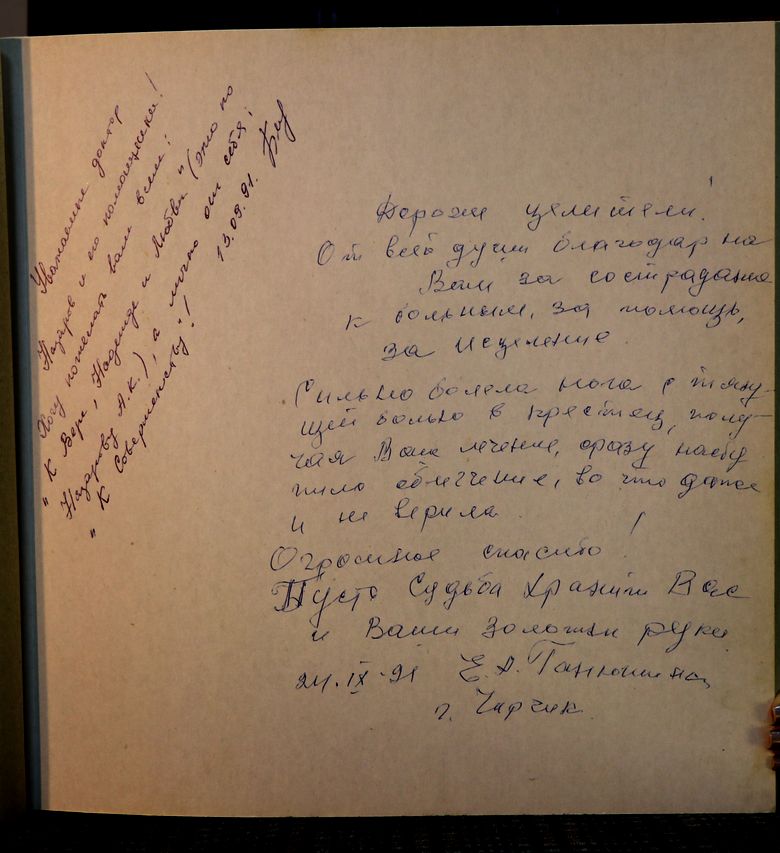 Уважаемые доктор
Назаров и его помощники!
Хочу пожелать вам всем:
"К Вере, Надежде и Любви" (это по
Назарову А.К.), а лично от себя:
"К Совершенству"!
13.09.91.
Дороги целители.
От всей души благодарна
Вам за сострадание
к больным, за помощь,
за исцеление.
Сильно болела нога с тяну-
щей болью в крестец, полу-
чая Ваше лечение, сразу насту
пило облегчение, во что даже
и не верила.
Огромное спасибо!
Пусть Судьба хранит Вас
и Ваши золотые руки
24.IX-91 Е.А.
г. Чирчик.